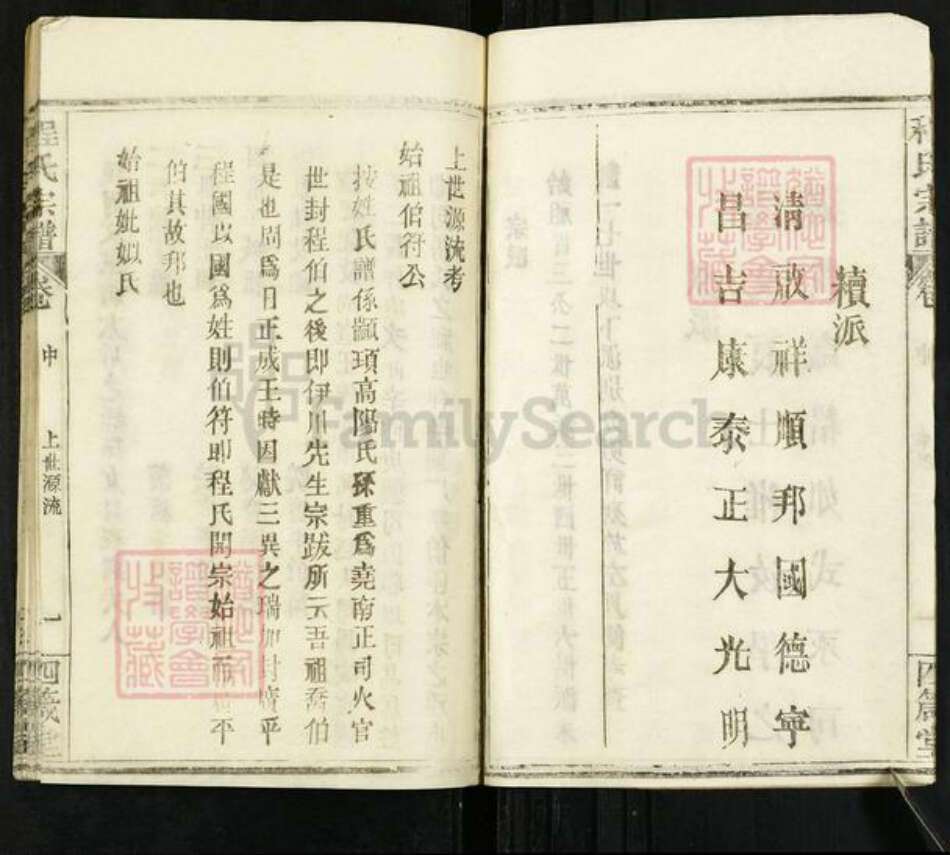 續派
清啟祥順邦國德寧
昌吉康泰正大光明
上世源流考
始祖伯符公
按姓氏譜係顓頊高陽氏孫重爲堯南正司火官
世封程伯之後即伊川先生宗跋所云吾祖喬伯
是也周爲日正成王時因獻三異之瑞加封廣平
程國以國爲姓則伯符即程氏開宗始祖而廣平
伯其故邦也
始祖妣姒氏
程氏宗譜
卷
中
上世源流
一
四箴堂
程氏宗譜
卷
四箴堂
譜學會
收藏
譜學會
收藏
FamilySearch